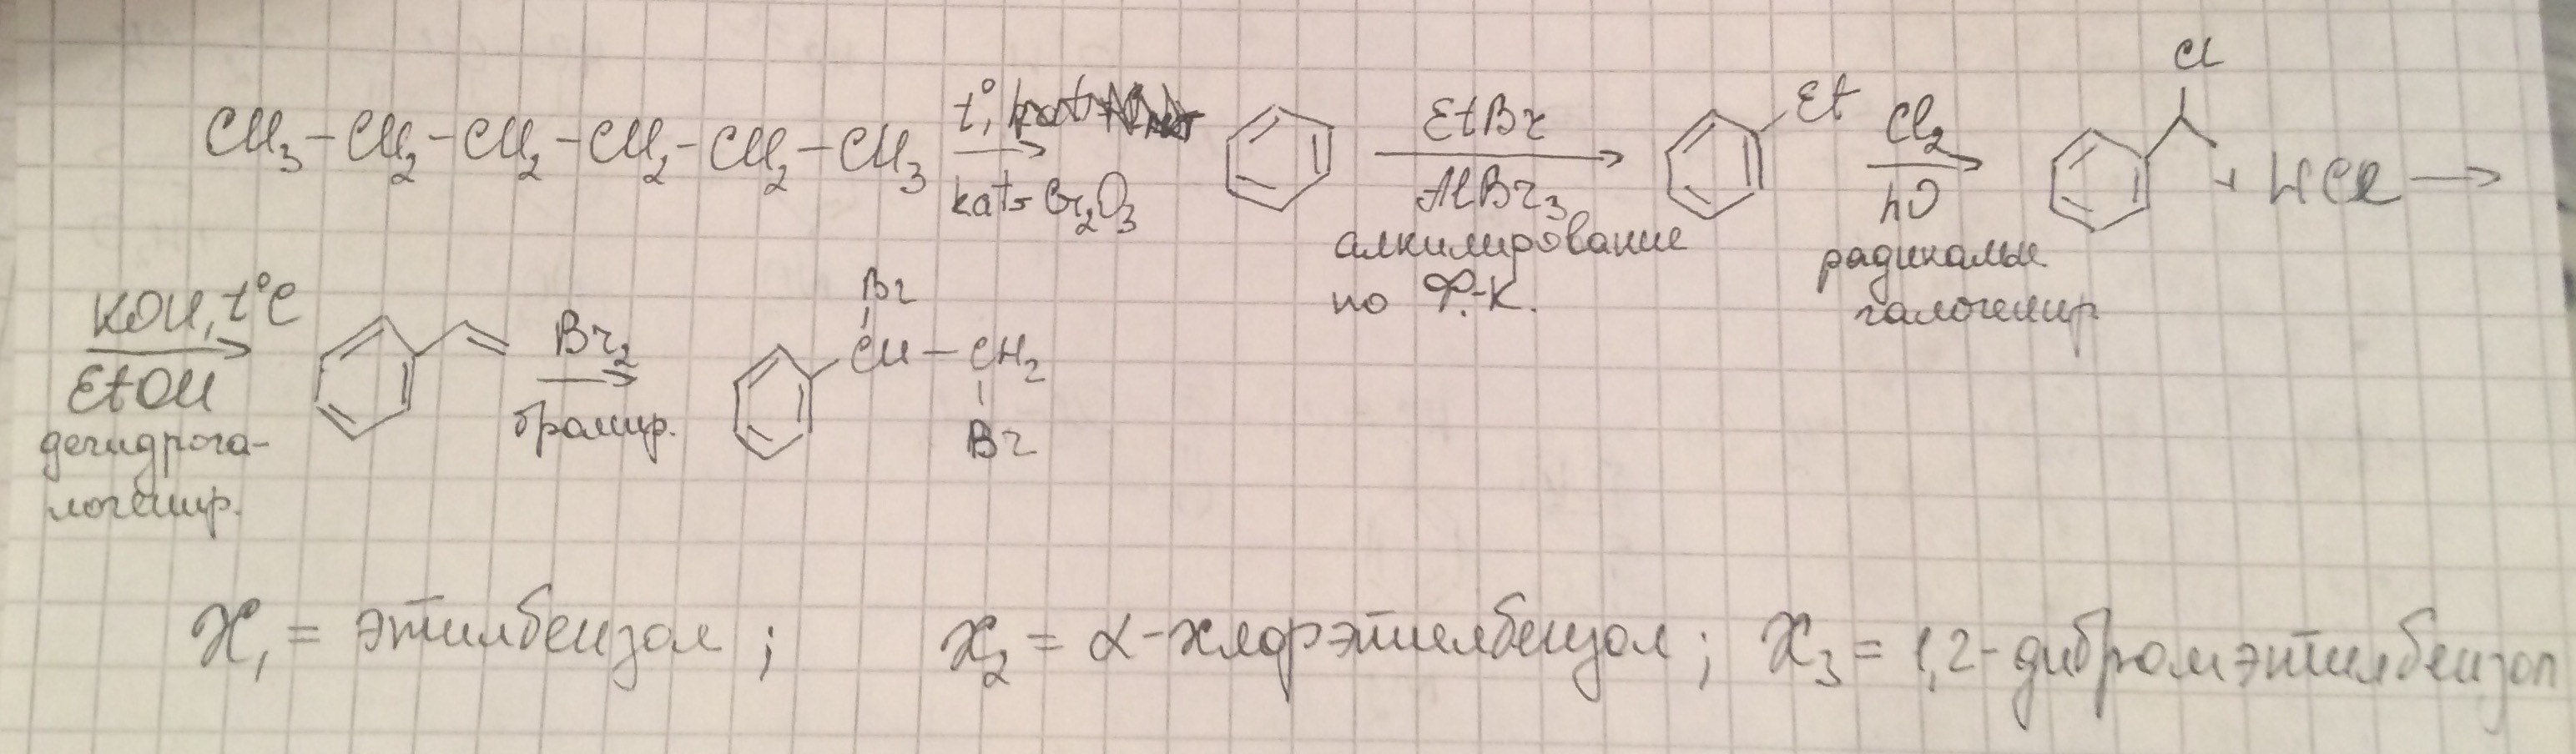 CH3-CH2-CH2-CH2-CH2-CH3 t°, kat=Cr2O3 → EtBr AlBr3 → Et Cl2 hν → Cl + HCl →
алкилирование по Ф.-К. радикальн. галогенир.
KOH, t°C EtOH → Br2 → Br CH-CH2 Br
дегидрога-
логенир. бромир.
X1 = этилбензол; X2 = α-хлорэтилбензол; X3 = 1,2-дибромэтилбензол